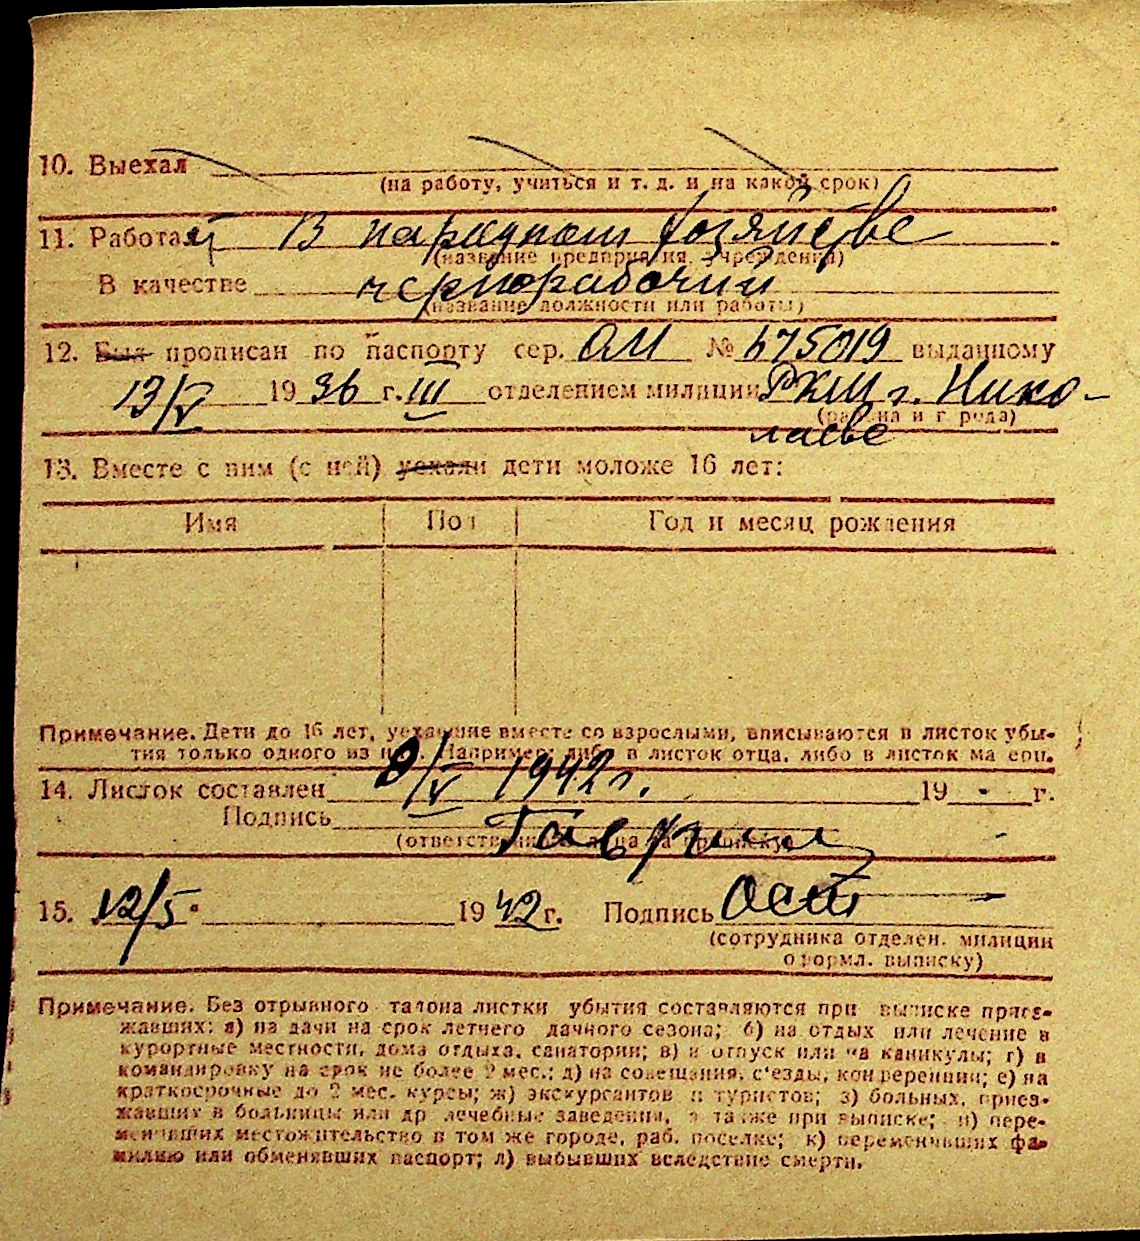 10. Выехал
(на работу, учиться и т. д. и на какой срок)
11. Работает В народном хозяйстве
(название предприятия, учреждения)
В качестве чернорабочий
(название должности или работы)
12. Был прописан по паспорту сер. ОМ № 675019 выданному
13/V 1936 г. III отделением милиции РКМ г. Нико-
(района и города)
лаеве
13. Вместе с ним (с ней) уехали дети моложе 16 лет:
Имя Пол Год и месяц рождения
Примечание. Дети до 16 лет, уехавшие вместе со взрослыми, вписываются в листок убы-
тия только одного из них. Например: либо в листок отца, либо в листок матери.
14. Листок составлен /V 1942 г. 19 г.
Подпись
(ответственного лица за прописку)
15. 12/5 1942 г. Подпись
(сотрудника отделен. милиции
оформл. выписку)
Примечание. Без отрывного талона листки убытия составляются при выписке приез-
жавших: а) на дачи на срок летнего дачного сезона; б) на отдых или лечение в
курортные местности, дома отдыха, санатории; в) в отпуск или на каникулы; г) в
командировку на срок не более 2 мес.; д) на совещания, с'езды, конференции; е) на
краткосрочные до 2 мес. курсы; ж) экскурсантов и туристов; з) больных, приез-
жавших в больницы или др лечебные заведения, а также при выписке; и) пере-
менивших местожительство в том же городе, раб. поселке; к) переменивших фа-
милию или обменявших паспорт; л) выбывших вследствие смерти.